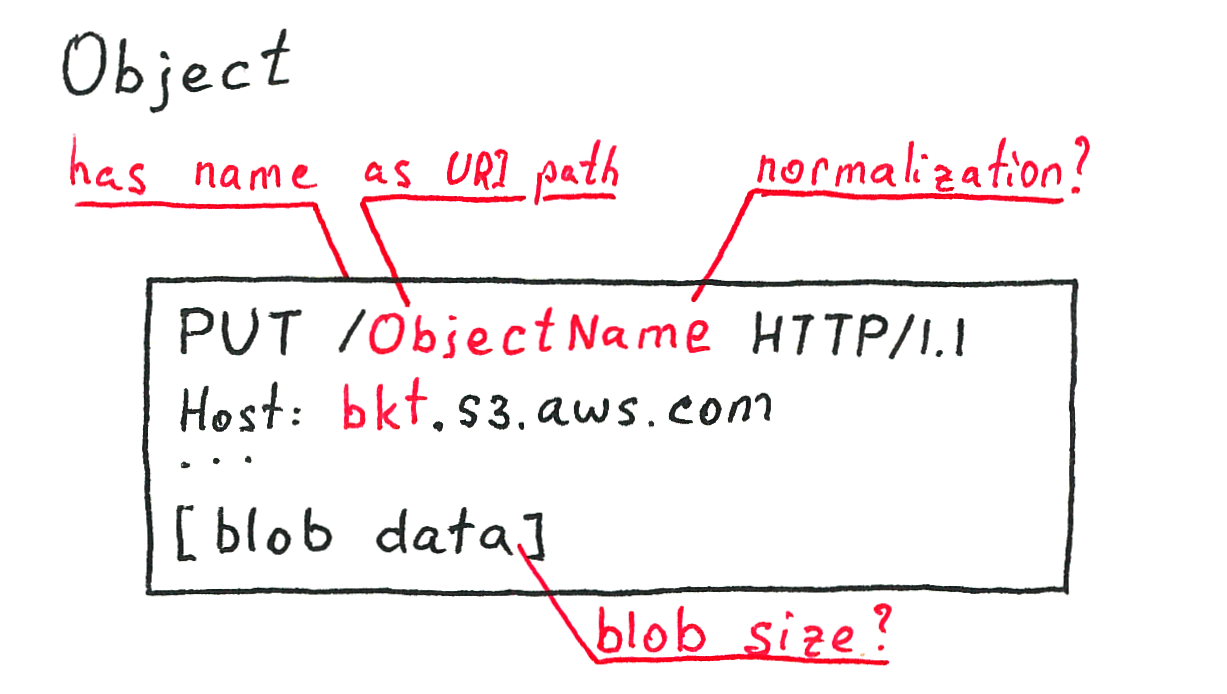 Object
has name as URI path
normalization?
PUT /ObjectName HTTP/1.1
Host: bkt.s3.aws.com
...
[blob data]
blob size?